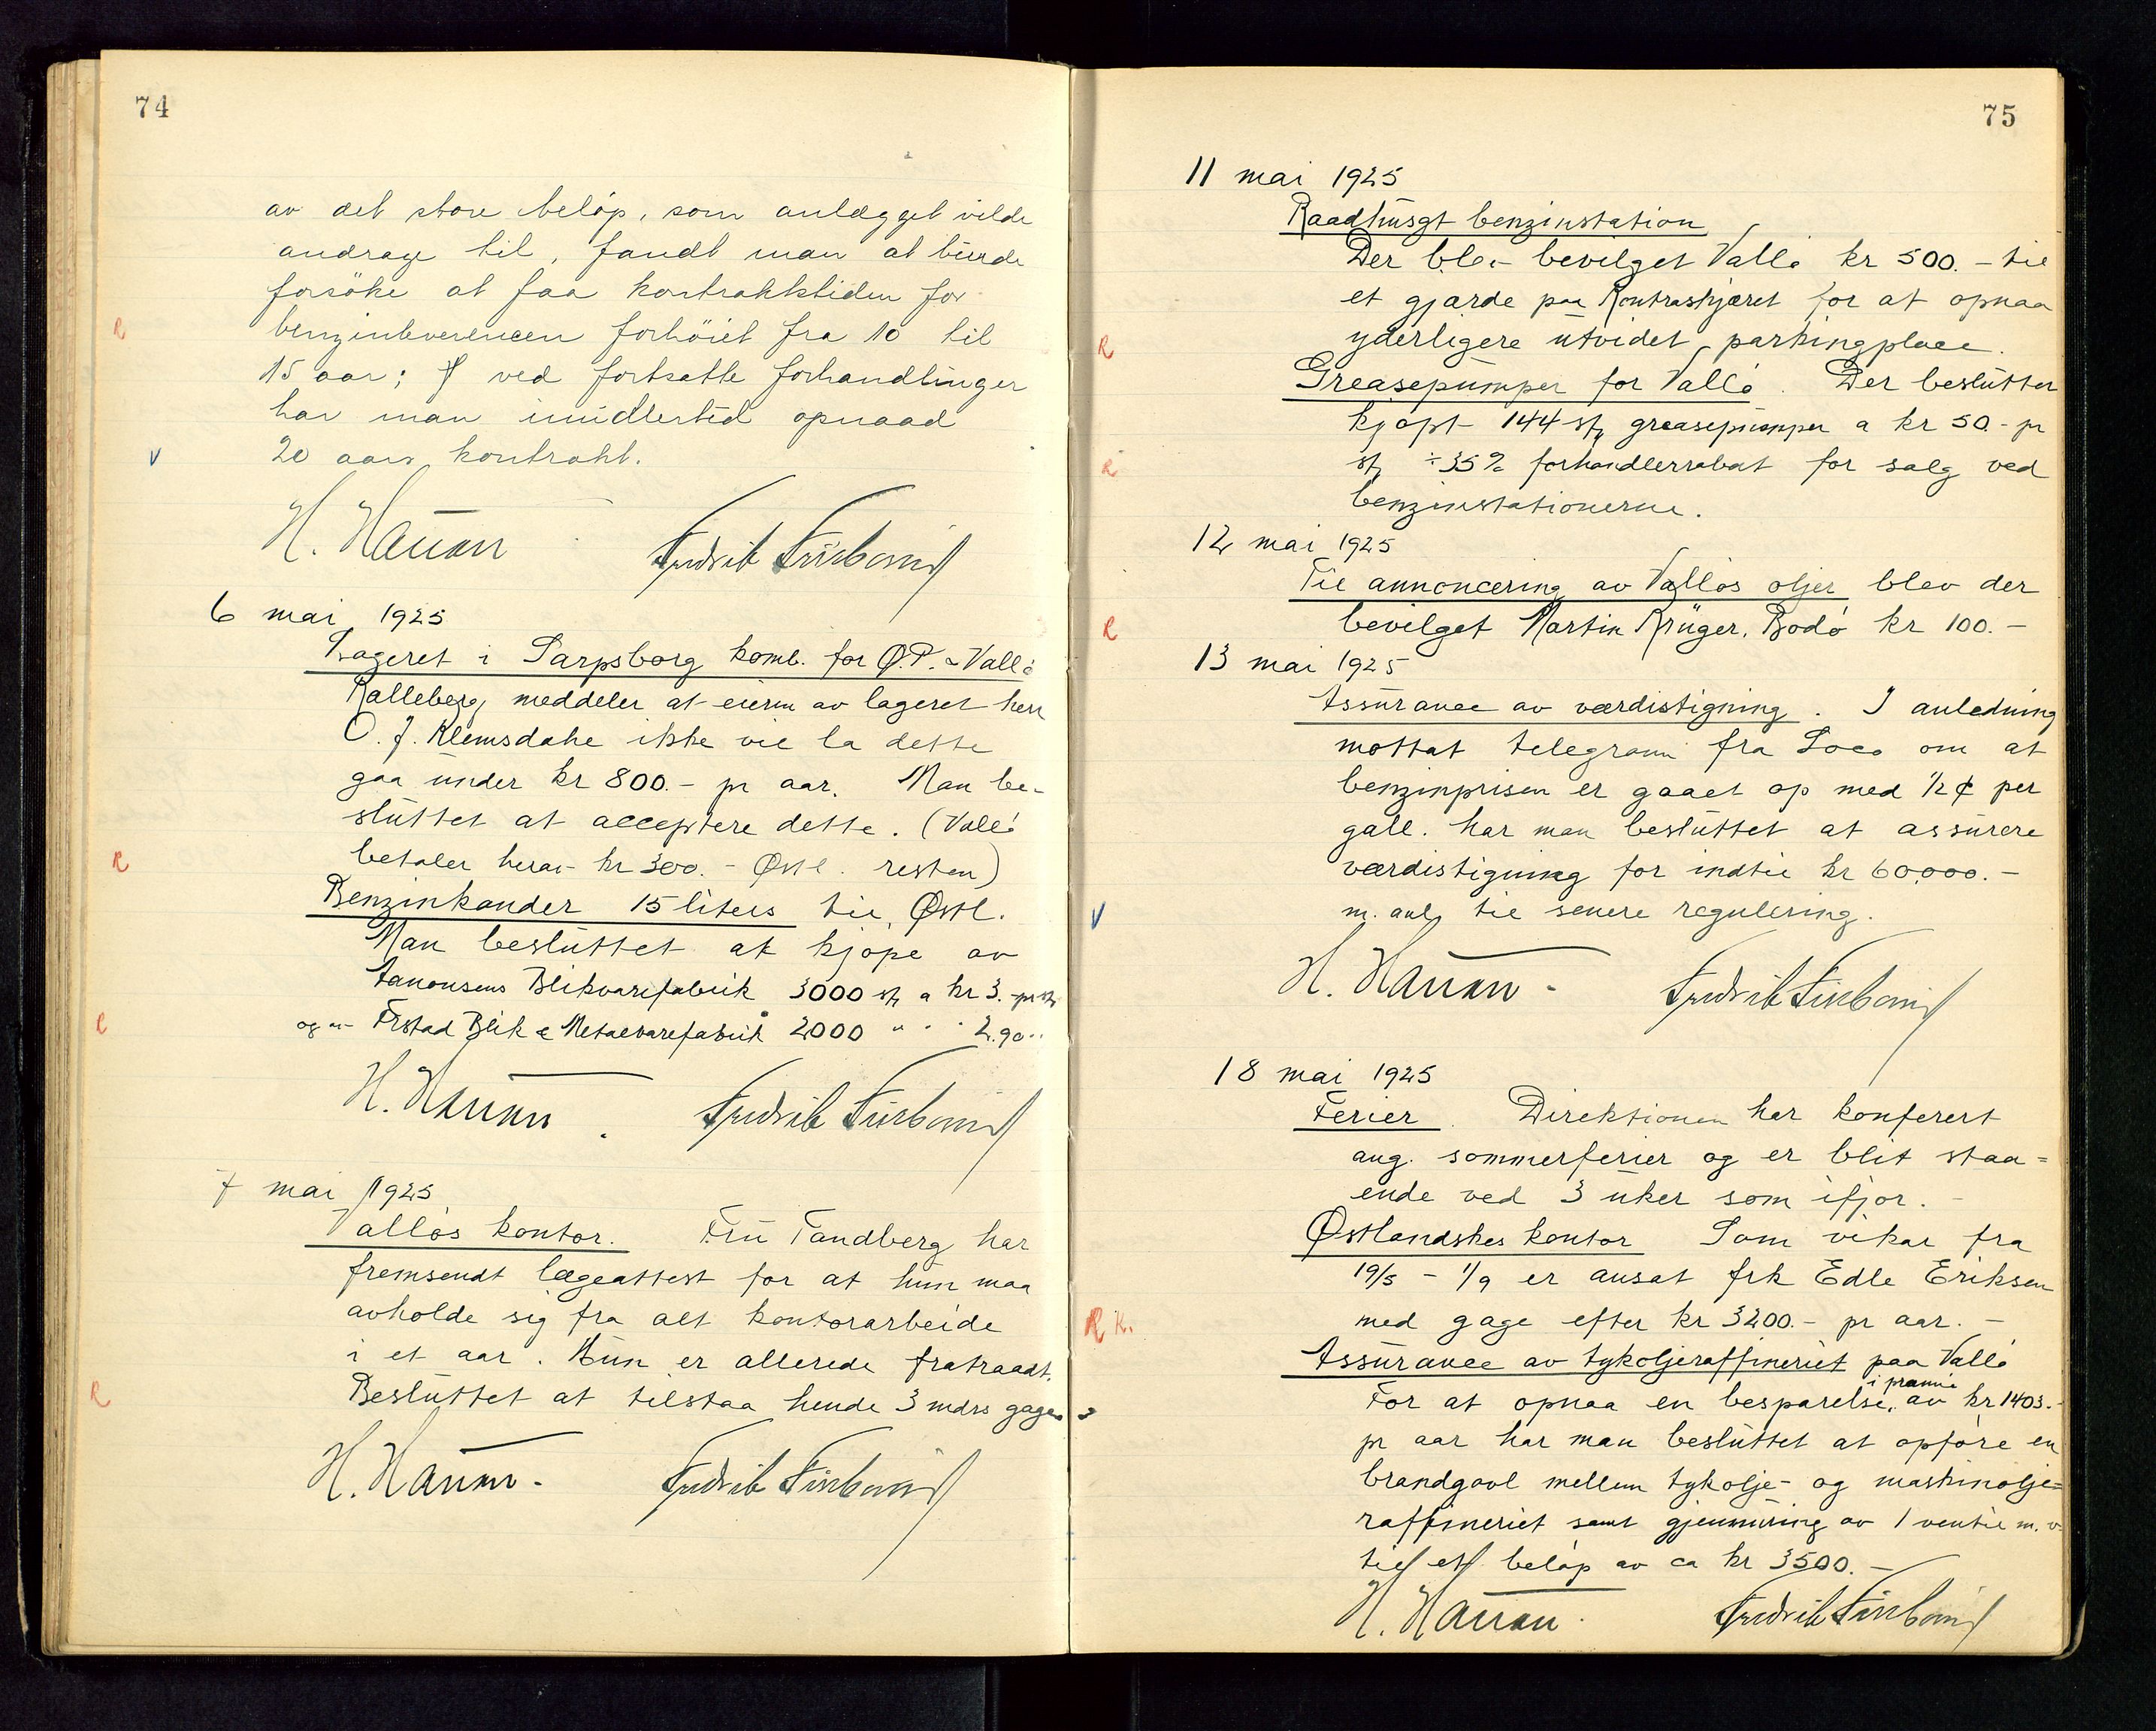 74
av det store beløp, som anlægget vilde
andrage til, fandt man at burde
forsöke at faa kontraktstiden for
benzinleverencen forhöiet fra 10 til
15 aar; ved fortsatte forhandlinger
har man imidlertid opnaad
20 aars kontrakt.
H. Hausan Fredrik
6 mai 1925
Lageret i Sarpsborg komb. for Ø.P. & Vallö
Kalleberg meddeler at eieren av lageret herr
O. J. Klemsdahl ikke vil la dette
gaa under kr 800.- pr aar. Man be-
sluttet at acceptere dette. (Vallö
betaler herav kr 300.- Østl. resten)
Benzinkander 15 liters til Østl.
Man besluttet at kjöpe av
Aanonsens Blikvarefabrik 3000 st a kr 3.- pr st
og av Frstad Blik & Metalvarefabrik 2000 " " " 2.90 "
H. Hausan Fredrik
7 mai 1925
Vallös kontor. Fru Tandberg har
fremsendt lægeattest for at hun maa
avholde sig fra alt kontorarbeide
i et aar. Hun er allerede fratraadt.
Besluttet at tilstaa hende 3 mdrs gage
H. Hausan Fredrik
75
11 mai 1925
Raadhusgt benzinstation
Der blev bevilget Vallö kr 500.- til
et gjærde paa Kontraskjæret for at opnaa
yderligere utvidet parkingplace.
Greasepumper for Vallö. Der beslutter
kjöpt 144 st greasepumper a kr 50.- pr
st ÷ 35% forhandlerrabat for salg ved
benzinstationerne.
12 mai 1925
Til annoncering av Vallös oljer blev der
bevilget Martin Krüger, Bodö kr 100.-
13 mai 1925
Assurance av værdistigning. I anledning
mottat telegram fra Soco om at
benzinprisen er gaaet op med ½ ¢ per
gall. har man besluttet at assurere
værdistigning for indtil kr 60,000.-
m. anl. til senere regulering.
H. Hausan Fredrik
18 mai 1925
Ferier. Direktionen har konferert
ang. sommerferier og er blit staa=
ende ved 3 uker som ifjor.-
Østlandskes kontor Som vikar fra
19/5 - 1/9 er ansat frk Edle Eriksen
med gage efter kr 3200.- pr aar.-
Assurance av tykoljeraffineriet paa Vallö
For at opnaa en besparelse i præmie av kr 1403.-
pr aar har man besluttet at opföre en
brandgavl mellem tykolje- og maskinolje=
raffineriet samt gjenmuring av 1 ventil m.v.
til et belöp av ca kr 3500.-
H. Hausan Fredrik